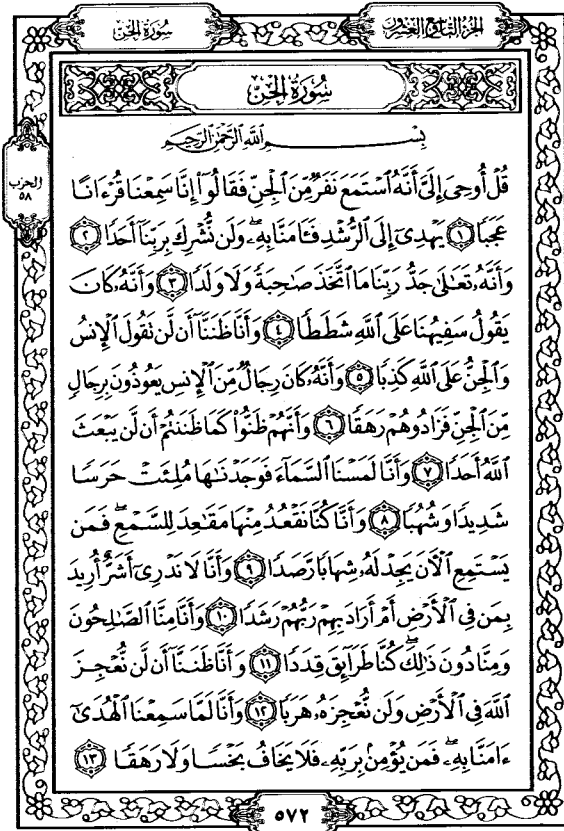 سُورَةُ الجِنّ
الجُزْءُ التَّاسِعُ وَالعِشْرُونَ
سُورَةُ الجِنّ
بِسْمِ ٱللَّهِ ٱلرَّحْمَٰنِ ٱلرَّحِيمِ
الحزب
٥٨
قُلْ أُوحِىَ إِلَىَّ أَنَّهُ ٱسْتَمَعَ نَفَرٌ مِّنَ ٱلْجِنِّ فَقَالُوٓا۟ إِنَّا سَمِعْنَا قُرْءَانًا
عَجَبًا ١ يَهْدِىٓ إِلَى ٱلرُّشْدِ فَـَٔامَنَّا بِهِۦ ۖ وَلَن نُّشْرِكَ بِرَبِّنَآ أَحَدًا ٢
وَأَنَّهُۥ تَعَٰلَىٰ جَدُّ رَبِّنَا مَا ٱتَّخَذَ صَٰحِبَةً وَلَا وَلَدًا ٣ وَأَنَّهُۥ كَانَ
يَقُولُ سَفِيهُنَا عَلَى ٱللَّهِ شَطَطًا ٤ وَأَنَّا ظَنَنَّآ أَن لَّن تَقُولَ ٱلْإِنسُ
وَٱلْجِنُّ عَلَى ٱللَّهِ كَذِبًا ٥ وَأَنَّهُۥ كَانَ رِجَالٌ مِّنَ ٱلْإِنسِ يَعُوذُونَ بِرِجَالٍ
مِّنَ ٱلْجِنِّ فَزَادُوهُمْ رَهَقًا ٦ وَأَنَّهُمْ ظَنُّوا۟ كَمَا ظَنَنتُمْ أَن لَّن يَبْعَثَ
ٱللَّهُ أَحَدًا ٧ وَأَنَّا لَمَسْنَا ٱلسَّمَآءَ فَوَجَدْنَٰهَا مُلِئَتْ حَرَسًا
شَدِيدًا وَشُهُبًا ٨ وَأَنَّا كُنَّا نَقْعُدُ مِنْهَا مَقَٰعِدَ لِلسَّمْعِ ۖ فَمَن
يَسْتَمِعِ ٱلْـَٔانَ يَجِدْ لَهُۥ شِهَابًا رَّصَدًا ٩ وَأَنَّا لَا نَدْرِىٓ أَشَرٌّ أُرِيدَ
بِمَن فِى ٱلْأَرْضِ أَمْ أَرَادَ بِهِمْ رَبُّهُمْ رَشَدًا ١٠ وَأَنَّا مِنَّا ٱلصَّٰلِحُونَ
وَمِنَّا دُونَ ذَٰلِكَ ۖ كُنَّا طَرَآئِقَ قِدَدًا ١١ وَأَنَّا ظَنَنَّآ أَن لَّن نُّعْجِزَ
ٱللَّهَ فِى ٱلْأَرْضِ وَلَن نُّعْجِزَهُۥ هَرَبًا ١٢ وَأَنَّا لَمَّا سَمِعْنَا ٱلْهُدَىٰٓ
ءَامَنَّا بِهِۦ ۖ فَمَن يُؤْمِنۢ بِرَبِّهِۦ فَلَا يَخَافُ بَخْسًا وَلَا رَهَقًا ١٣
٥٧٢